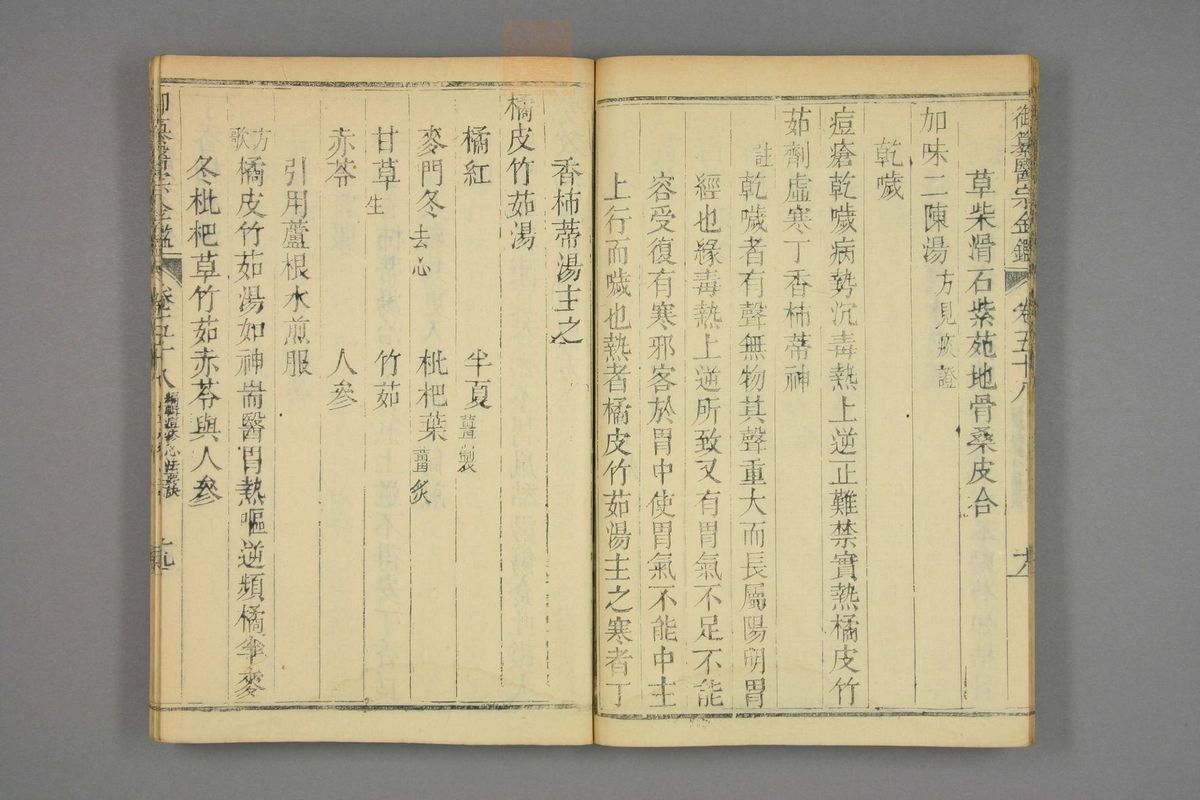 御纂醫宗金鑑 卷五十八
草柴滑石紫苑地骨桑皮合
加味二陳湯方見痰證
乾噦
痘瘡乾噦病勢沉毒熱上逆正難禁實熱橘皮竹
茹劑虛寒丁香柿蒂神
註
乾噦者有聲無物其聲重大而長屬陽明胃
經也緣毒熱上逆所致又有胃氣不足不能
容受復有寒邪客於胃中使胃氣不能中主
上行而噦也熱者橘皮竹茹湯主之寒者丁
香柿蒂湯主之
橘皮竹茹湯
橘紅 半夏薑製
麥門冬去心 枇杷葉薑炙
甘草生 竹茹
赤苓 人參
引用蘆根水煎服
方歌 橘皮竹茹湯如神耑醫胃熱嘔逆頻橘半麥
冬枇杷草竹茹赤苓與人參
御纂醫宗金鑑 卷五十八